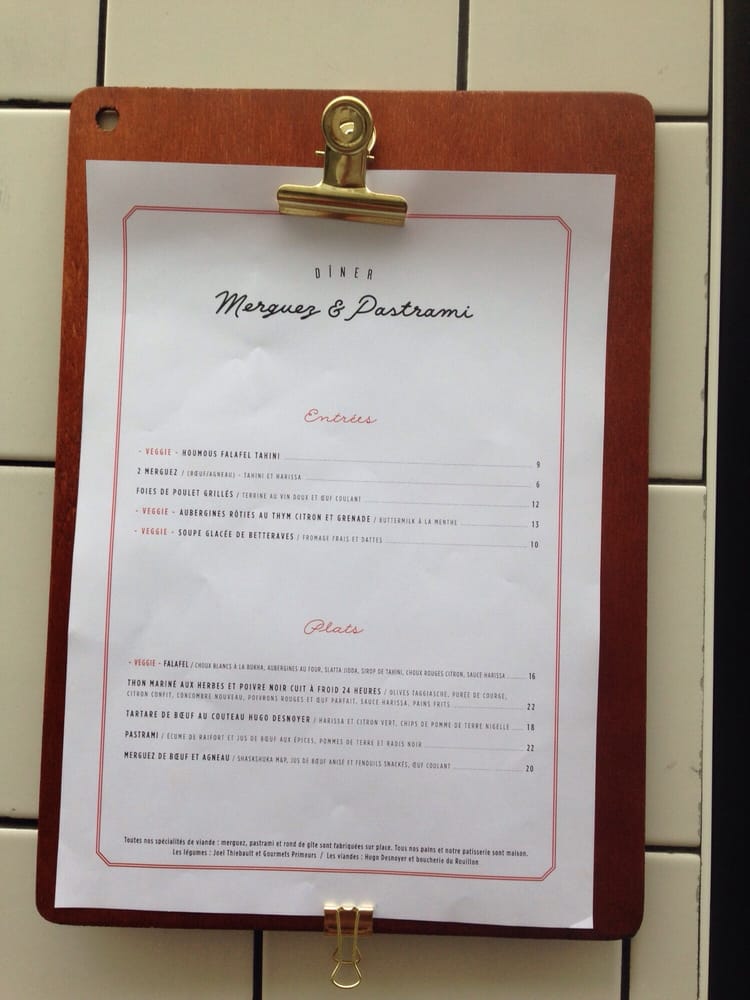 DÎNER
Merguez & Pastrami
Entrées
- VEGGIE - HOUMOUS FALAFEL TAHINI 9
2 MERGUEZ / (BŒUF/AGNEAU) - TAHINI ET HARISSA 6
FOIES DE POULET GRILLÉS / TERRINE AU VIN DOUX ET ŒUF COULANT 12
- VEGGIE - AUBERGINES RÔTIES AU THYM CITRON ET GRENADE / BUTTERMILK À LA MENTHE 13
- VEGGIE - SOUPE GLACÉE DE BETTERAVES / FROMAGE FRAIS ET DATTES 10
Plats
- VEGGIE - FALAFEL / CHOUX BLANCS À LA BOKHA, AUBERGINES AU FOUR, SLATTA JIDDA, SIROP DE TAHINI, CHOUX ROUGES CITRON, SAUCE HARISSA 16
THON MARINÉ AUX HERBES ET POIVRE NOIR CUIT À FROID 24 HEURES / OLIVES TAGGIASCHE, PURÉE DE COURGE,
CITRON CONFIT, CONCOMBRE NOUVEAU, POIVRONS ROUGES ET ŒUF PARFAIT, SAUCE HARISSA, PAINS FRITS 22
TARTARE DE BŒUF AU COUTEAU HUGO DESNOYER / HARISSA ET CITRON VERT, CHIPS DE POMME DE TERRE NIGELLE 18
PASTRAMI / ÉCUME DE RAIFORT ET JUS DE BŒUF AUX ÉPICES, POMMES DE TERRE ET RADIS NOIR 22
MERGUEZ DE BŒUF ET AGNEAU / SHASKSHUKA M&P, JUS DE BŒUF ANISÉ ET FENOUILS SNACKÉS, ŒUF COULANT 20
Toutes nos spécialités de viande : merguez, pastrami et rond de gîte sont fabriquées sur place. Tous nos pains et notre patisserie sont maison.
Les légumes : Joel Thiebault et Gourmets Primeurs / Les viandes : Hugo Desnoyer et boucherie du Rouillon